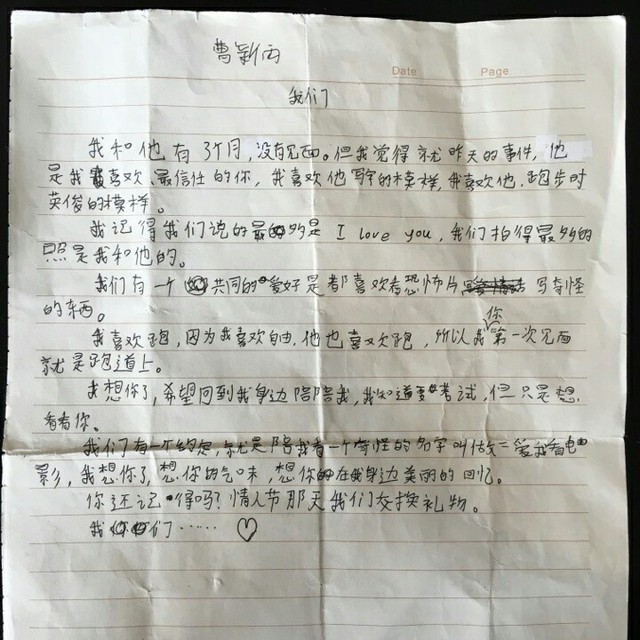 曹新雨
Date Page
我们
我和他有3个月，没有见面。但我觉得就昨天的事件，他
是我最喜欢、最信任的你，我喜欢他写字的模样，我喜欢他跑步时
英俊的模样。
我记得我们说的最多的是 I love you，我们拍得最多的
照是我和他的。
我们有一个共同的爱好是都喜欢看恐怖片 写奇怪
的东西。
我喜欢跑，因为我喜欢自由，他也喜欢跑，所以我你第一次见面
就是跑道上。
我想你了，希望回到我身边陪陪我，我知道要考试，但只是想
看看你。
我们有一个约定，就是陪我看一个奇怪的名字叫做二爱我看电
影，我想你了，想你的气味，想你在我身边美丽的回忆。
你还记得吗？情人节那天我们交换礼物。
我们……